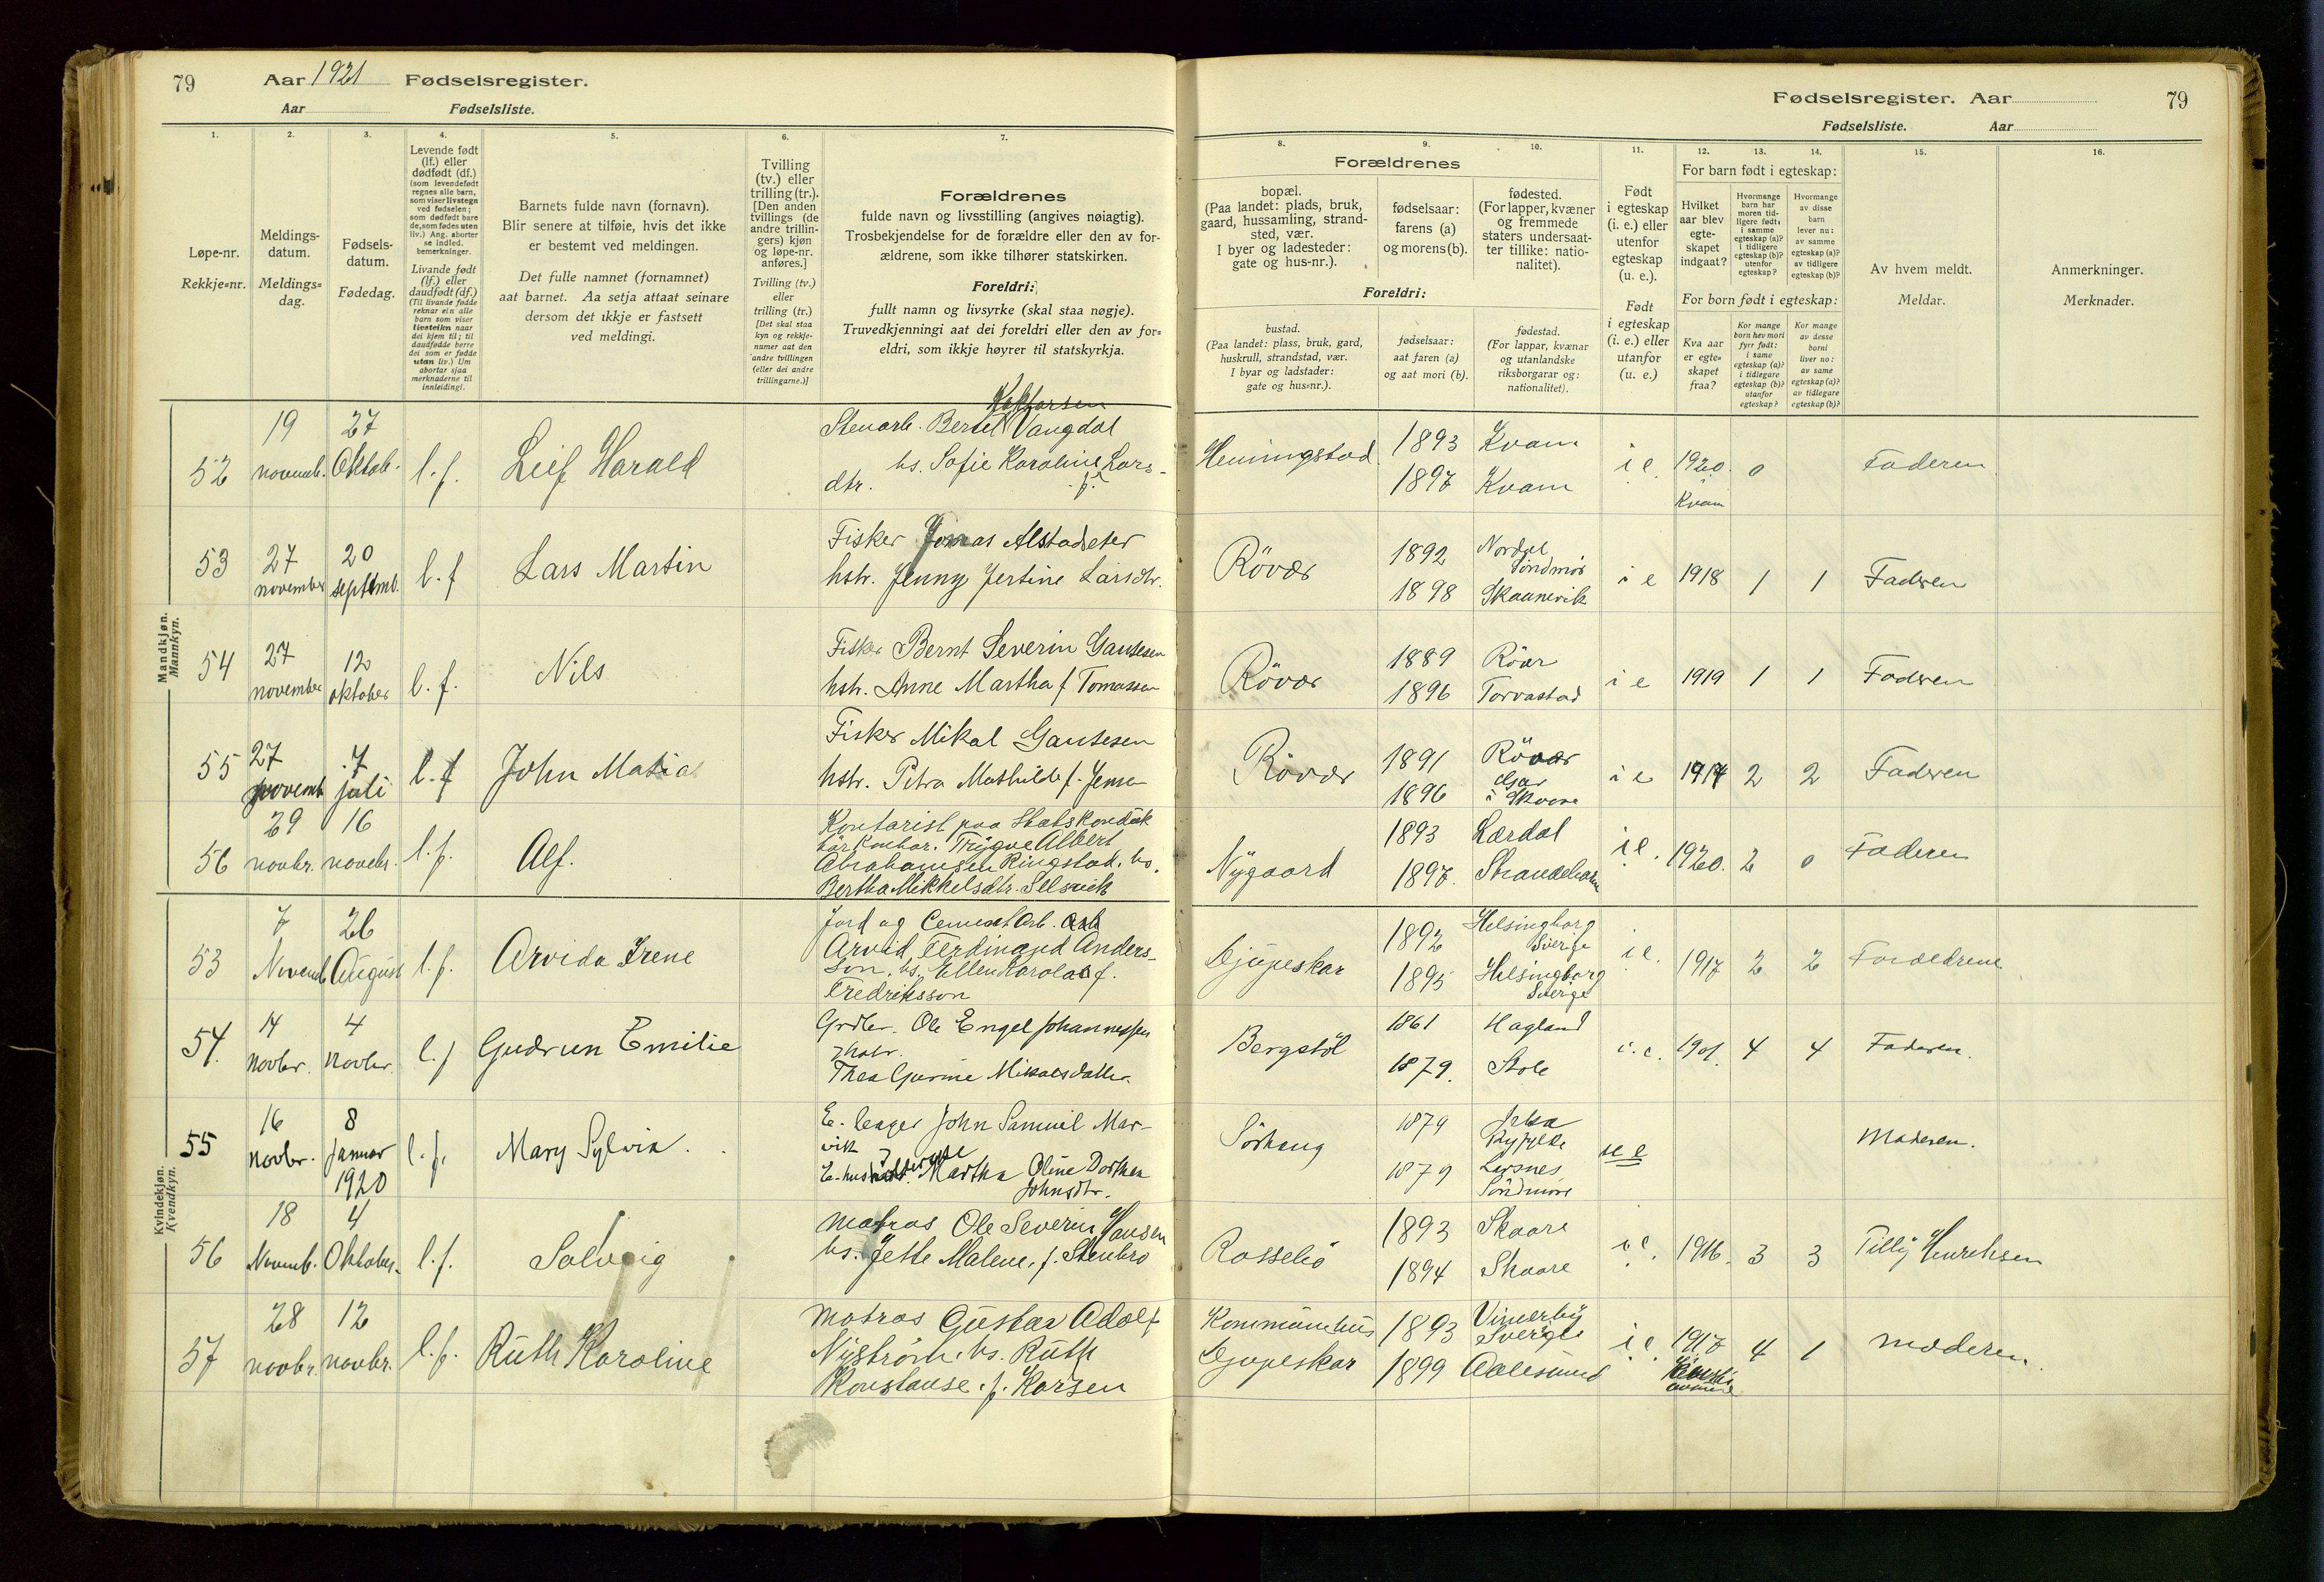 79 Aar 1921 Fødselsregister.
Aar Fødselsliste.
Fødselsregister. Aar 79
Fødselsliste. Aar
1. 2. 3. 4. 5. 6. 7.
Løpe-nr.
Rekkje=nr.
Meldings-
datum.
Meldings=
dag.
Fødsels-
datum.
Fødedag.
Levende født
(lf.) eller
dødfødt (df.)
(som levendefødt
regnes alle barn,
som viser livstegn
ved fødselen;
som dødfødt bare
de, som fødes uten
liv.) Ang. aborter
se indled.
bemerkninger.
Livande født
(lf.) eller
daudfødt (df.)
(Til livande fødde
reknar ein alle
barn som viser
livsteikn naar
dei kjem til; til
daudfødde berre
dei som er fødde
utan liv.) Um
abortar sjaa
merknaderne til
innleidingi.
Barnets fulde navn (fornavn).
Blir senere at tilføie, hvis det ikke
er bestemt ved meldingen.
Det fulle namnet (fornamnet)
aat barnet. Aa setja attaat seinare
dersom det ikkje er fastsett
ved meldingi.
Tvilling
(tv.) eller
trilling (tr.).
[Den anden
tvillings (de
andre trillin-
gers) kjøn
og løpe-nr.
anføres.]
Tvilling (tv.)
eller
trilling (tr.)
[Det skal staa
kyn og rekkje-
numer aat den
andre tvillingen
(eller dei andre
trillingarne.)]
Forældrenes
fulde navn og livsstilling (angives nøiagtig).
Trosbekjendelse for de forældre eller den av for-
ældrene, som ikke tilhører statskirken.
Foreldri:
fullt namn og livsyrke (skal staa nøgje).
Truvedkjenningi aat dei foreldri eller den av for=
eldri, som ikkje høyrer til statskyrkja.
8. 9. 10. 11. 12. 13. 14. 15. 16.
Forældrenes
bopæl.
(Paa landet: plads, bruk,
gaard, hussamling, strand-
sted, vær.
I byer og ladesteder:
gate og hus-nr.).
fødselsaar:
farens (a)
og morens (b).
fødested.
(For lapper, kvæner
og fremmede
staters undersaat-
ter tillike: natio-
nalitet).
Foreldri:
bustad.
(Paa landet: plass, bruk, gard,
huskrull, strandstad, vær.
I byar og ladstader:
gate og hus=nr.).
fødselsaar:
aat faren (a)
og aat mori (b).
fødestad.
(For lappar, kvænar
og utanlandske
riksborgarar og:
nationalitet).
Født
i egteskap
(i. e.) eller
utenfor
egteskap
(u. e.).
Født
i egteskap
(i. e.) eller
utanfor
(u. e.)
For barn født i egteskap:
Hvilket
aar blev
egte-
skapet
indgaat?
Hvormange
barn har
moren tid-
ligere født:
i samme
egteskap (a)?
i tidligere
egteskap (b)?
utenfor
egteskap?
Hvormange
av disse
barn
lever nu:
av samme
egteskap (a)?
av tidligere
egteskap (b)?
For born født i egteskap:
Kva aar
er egte=
skapet
fraa?
Kor mange
born hev mori
fyrr født:
i same
egteskap (a)?
i tidlegare
egteskap (b)?
utanfor
egteskap?
Kor mange
av desse
borni
liver no:
av same
egteskap (a)?
av tidlegare
egteskap (b)?
Av hvem meldt.
Meldar.
Anmerkninger.
Merknader.
Mandkjøn.
Mannkyn.
52 19 novemb. 27 Oktob. l.f. Leif Harald
Stenarb. Bertel Vangdal
hs. Sofie Karoline Lars-
dtr.
Hemingstad 1893 Kvam i e. 1920. 0 Faderen
1897 Kvam Kvam
53 27 november 20 septemb. l.f Lars Martin
Fisker Jonas Alstadseter
hstr. Jenny Jertine Larsdtr.
Røvær 1892 Nordal Söndmör i e 1918 1 1 Faderen
1898 Skaanevik
54 27 november 12 oktober l.f. Nils
Fisker Bernt Severin Gautesen
hstr. Anne Martha f Tomassen
Røvær 1889 Rövær i e 1919 1 1 Faderen
1896 Torvastad
55 27 novemb 7 juli l.f John Matias
Fisker Mikal Gautesen
hstr. Petra Mathilde f. Jensen
Røvær 1891 Røvær i e 1917 2 2 Faderen
1896 i Skaare
56 29 novbr. 16 novebr. l.f. Alf.
Kontorist paa Statskonduk
tör kontor. Trygve Albert
Abrahamsen Ringstad. hs.
Bertha Mikkelsdtr. Selsvik
Nygaard 1893 Lærdal i e. 1920. 2 0 Faderen
1897. Strandebarm
Kvindekjøn.
Kvendkyn.
53 7 Novemb 26 August l.f. Arvida Irene
Jord og Cementarb.
Arvid Ferdinand Anders-
son. hs. Ellen Karola f.
Fredriksson
Djupeskar 1892 Helsingborg Sverige i e. 1917 2 2 Forældrene
1895 Helsingborg Sverige
54. 14 Novbr. 4 Novbr. l.f Gudrun Emilie
Grdbr. Ole Engel Johannessen
Thea Gurine Mikalsdatter
Bergstöl 1861 Hagland i. e. 1901. 4 4 Faderen.
1879. Stole
55 16 Novbr. 8 Januar 1920 l.f. Mary Sylvia.
E. John Samuel Mar-
vik
Martha Oline Dorthea
Johnsdtr.
Sörhaug 1879 Jelsa Ryfylke u e Moderen.
1879 Larsnes Söndmöre
56 18 Novemb. 4 Oktober. l.f. Solveig
Matros Ole Severin Hansen
hs. Jette Malene. f. Stenbro
Rosseliö 1893 Skaare i e. 1916. 3 3 Tilly Henriksen
1894 Skaare
57 28 novbr. 12 novbr. l.f. Ruth Karoline
Matros Gustav Adolf
Nyström. hs. Ruth
Konstanse. f. Karsen
Kommunehus 1893 Vimerby Sverge i e. 1917 4 1 Moderen.
Djupeskar 1899 Aalesund